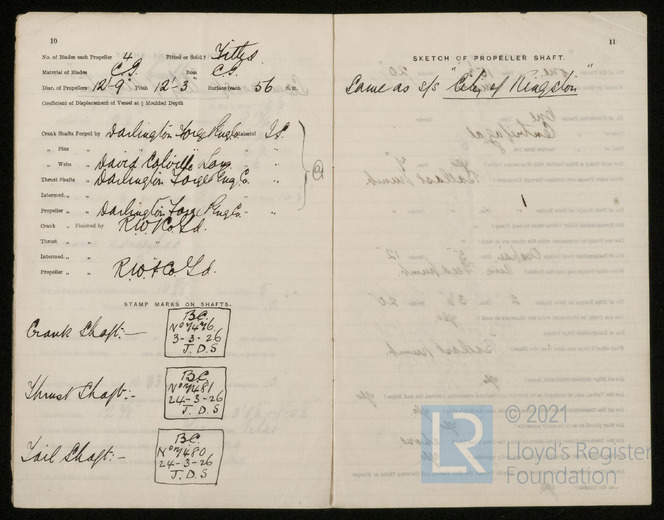 10
No. of Blades each Propeller 4 Fitted or Solid? Fitted.
Material of Blades C.I. Boss C.I.
Diar. of Propellers 12'-9" Pitch 12'-3" Surface (each 56 S. ft.
Coefficient of Displacement of Vessel at ½ Moulded Depth
Crank Shafts Forged by Darlington Forge Eng Co Material I.S.
„ Pins „
„ Webs „ David Colville & Sons
Thrust Shafts „ Darlington Forge Eng. Co. „
Intermed. „ „
Propeller „ „ Darlington Forge Eng Co. „
Crank „ Finished by R.W. & Co Ld.
Thrust „ „
Intermed. „ „
Propeller „ „ R.W. & Co Ld.
STAMP MARKS ON SHAFTS.
Crank Shaft:— B.C. No 7476. 3-3-26 J.D.S
Thrust Shaft:- B.C. No 7481 24-3-26 J.D.S
Tail Shaft:— B.C. No 7480 24-3-26 J.D.S
11
SKETCH OF PROPELLER SHAFT.
Same as s/s "City of Kingston"
LR
© 2021
Lloyd's Register
Foundation